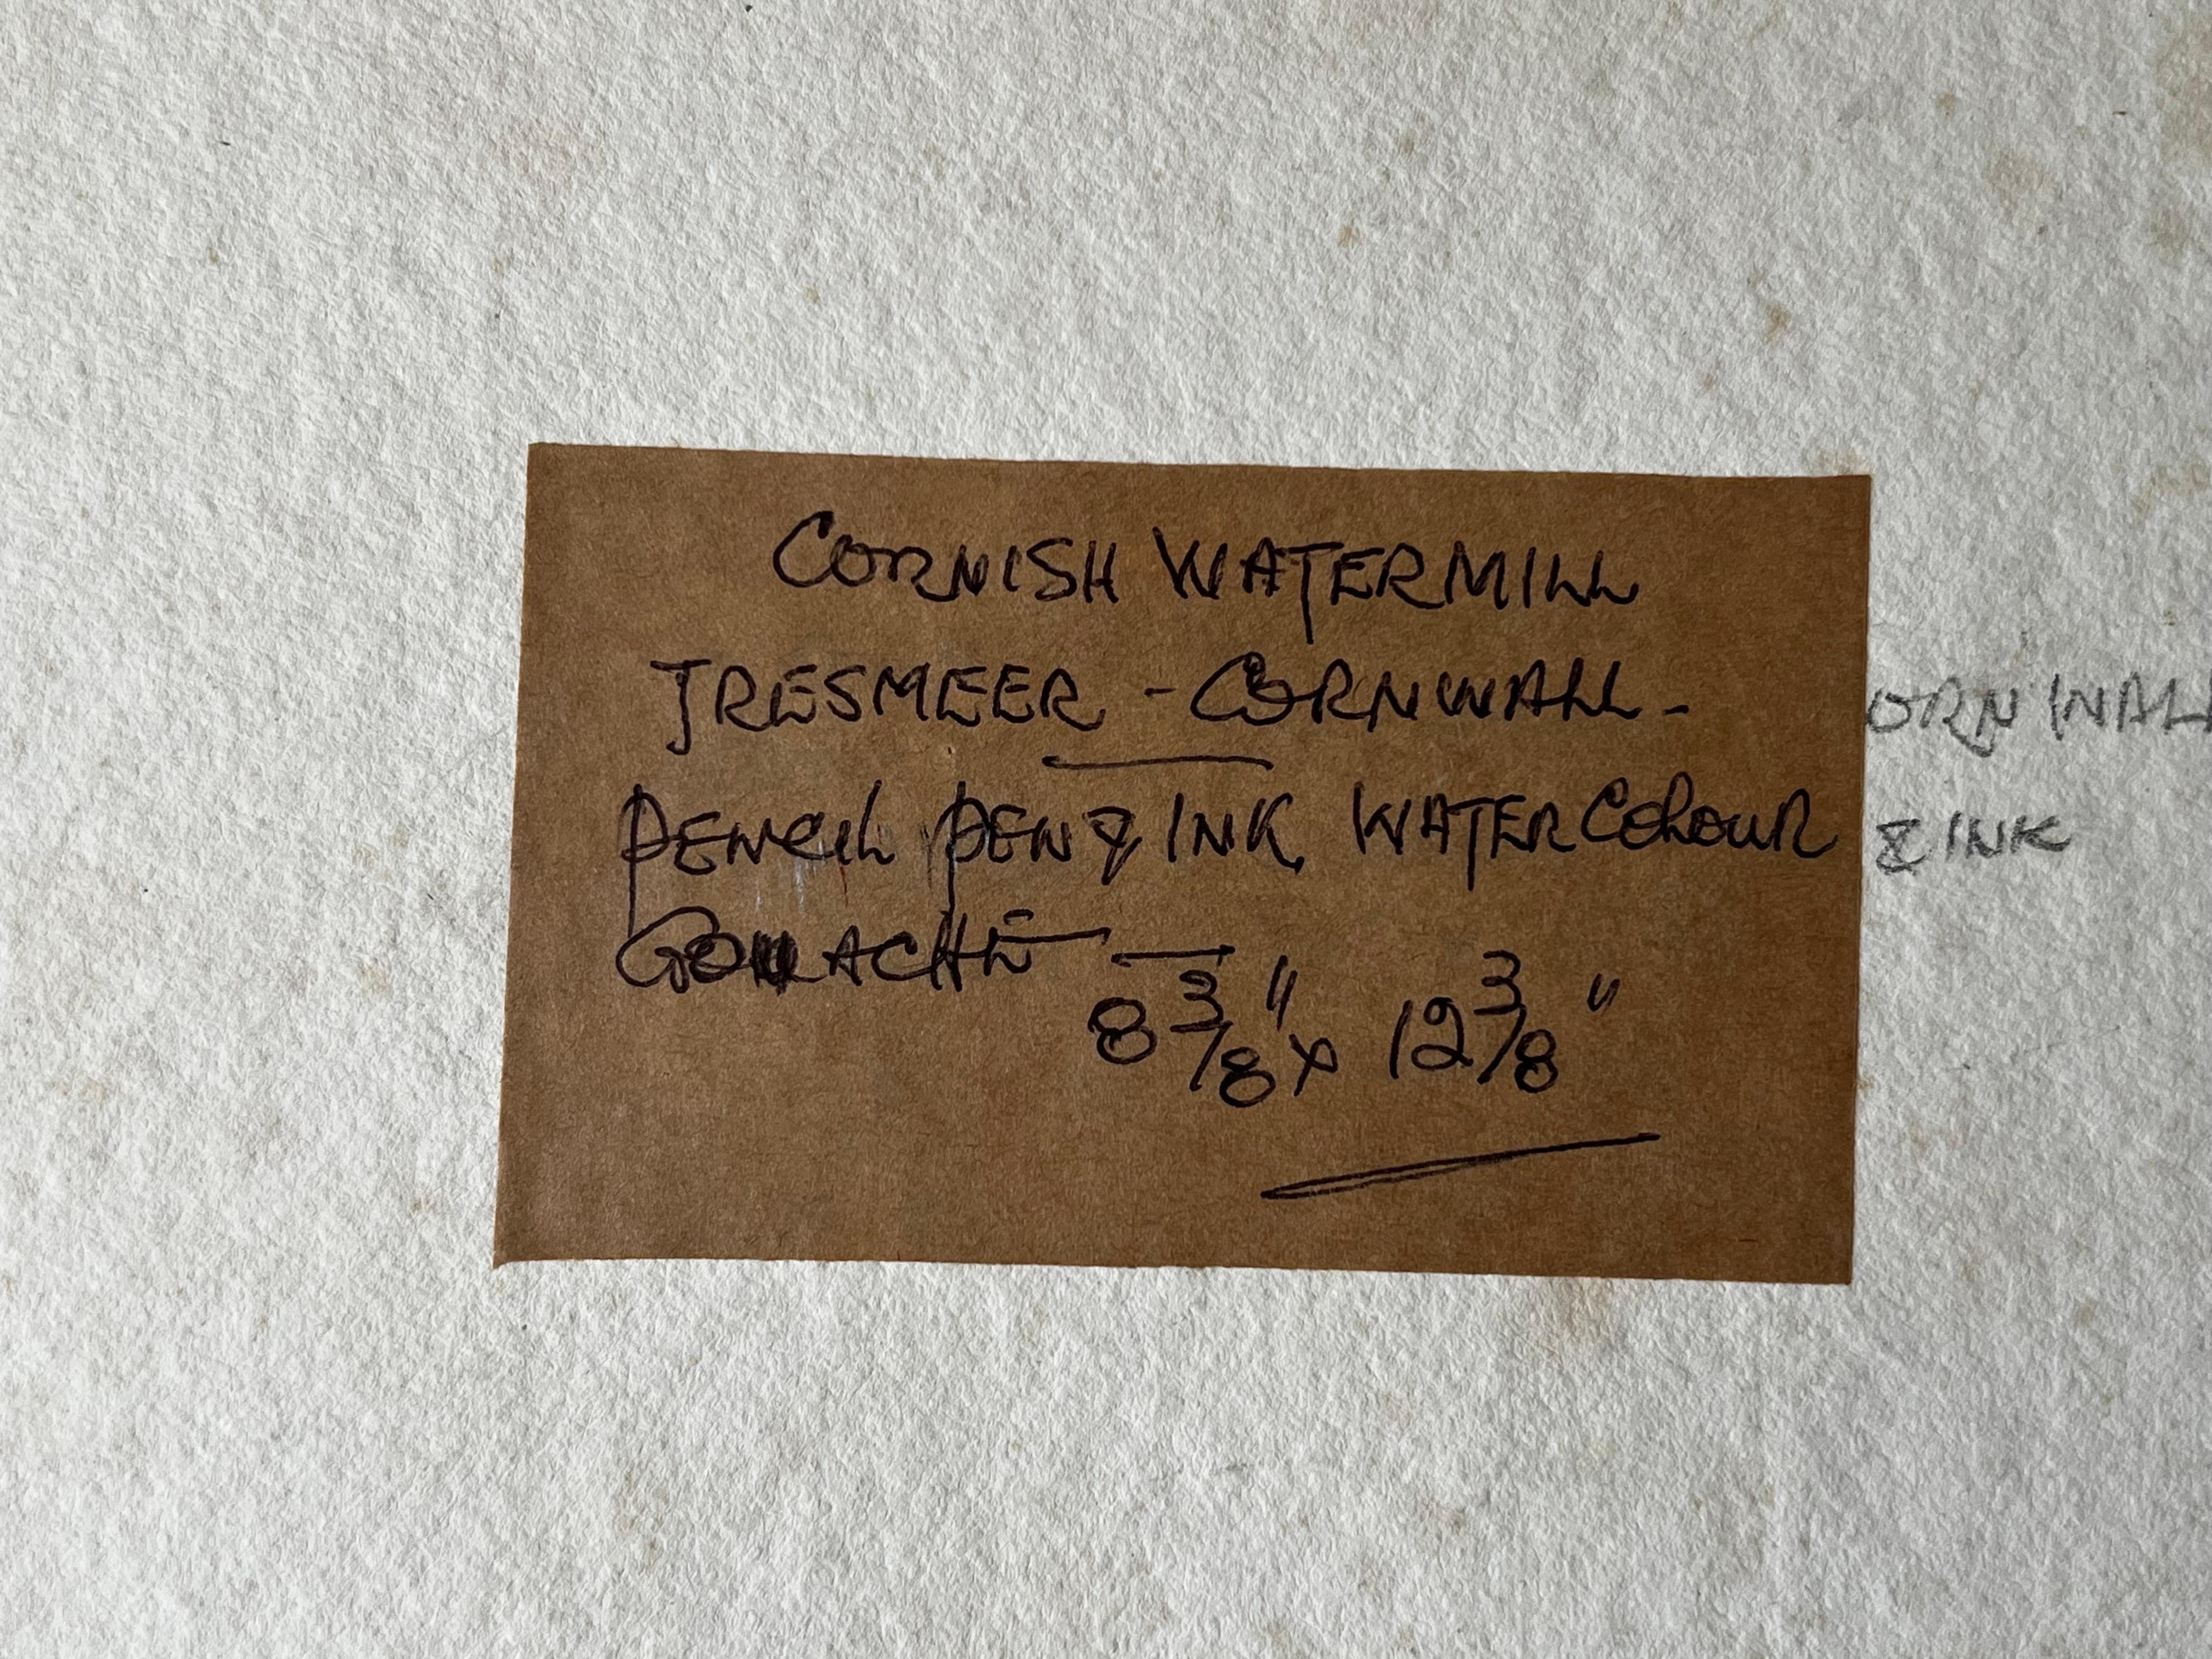 CORNISH WATERMILL
TRESMEER - CORNWALL -
PENCIL PEN & INK, WATERCOLOUR
GOUACHE
8 3/8" x 12 3/8"
ORNWALL
& INK